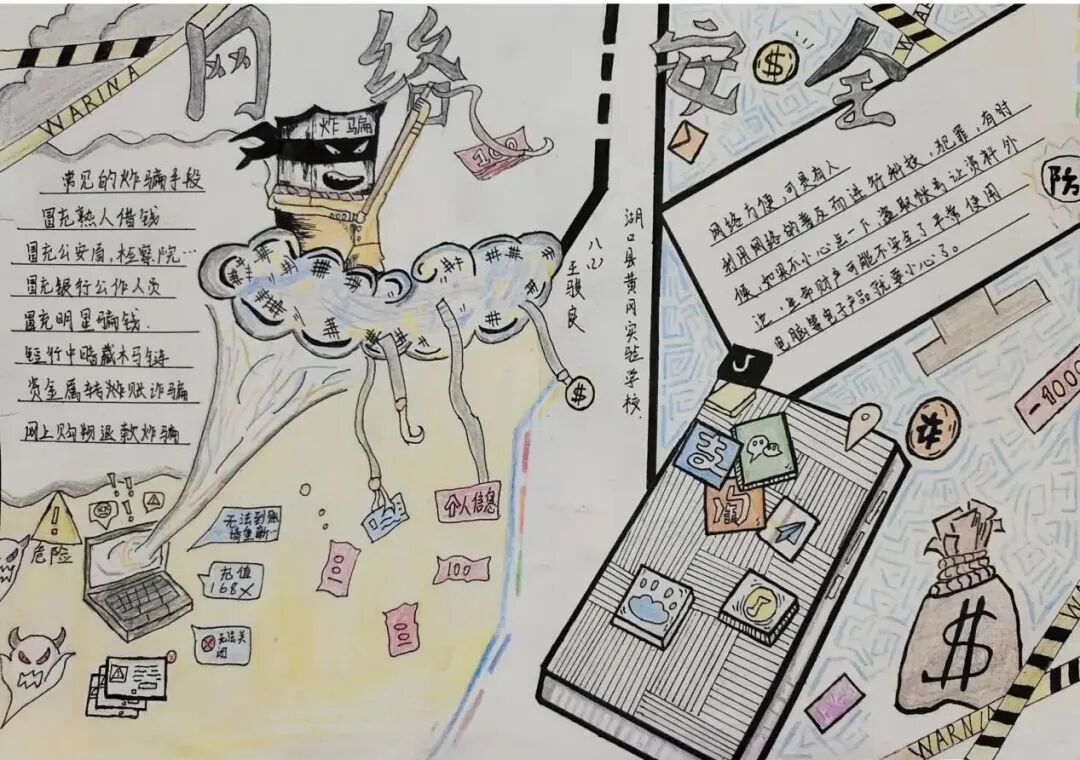 网络安全
WARINA
炸骗
100
常见的炸骗手段
冒充熟人借钱
冒充公安局,检察院…
冒充银行公作人员
冒充明星骗钱.
短行中暗藏木马链
资金属转炸账诈骗
网上购物退款炸骗
危险
无法到账
请重新…
充值
168X
无法关
闭
个人信息
100
100
100
$
湖口县黄冈实验学校.
八(2)
王骏良
$
网络方便,可是有人
利用网络的普及而进行科技,犯罪,有时
候,如果不小心点一下,盗取帐号让资料外
边,生命财产可能不安全了平常使用
电脑等电子产品就要小心了。
防
诈
-1000
支
淘
$
WARNIN
WARN